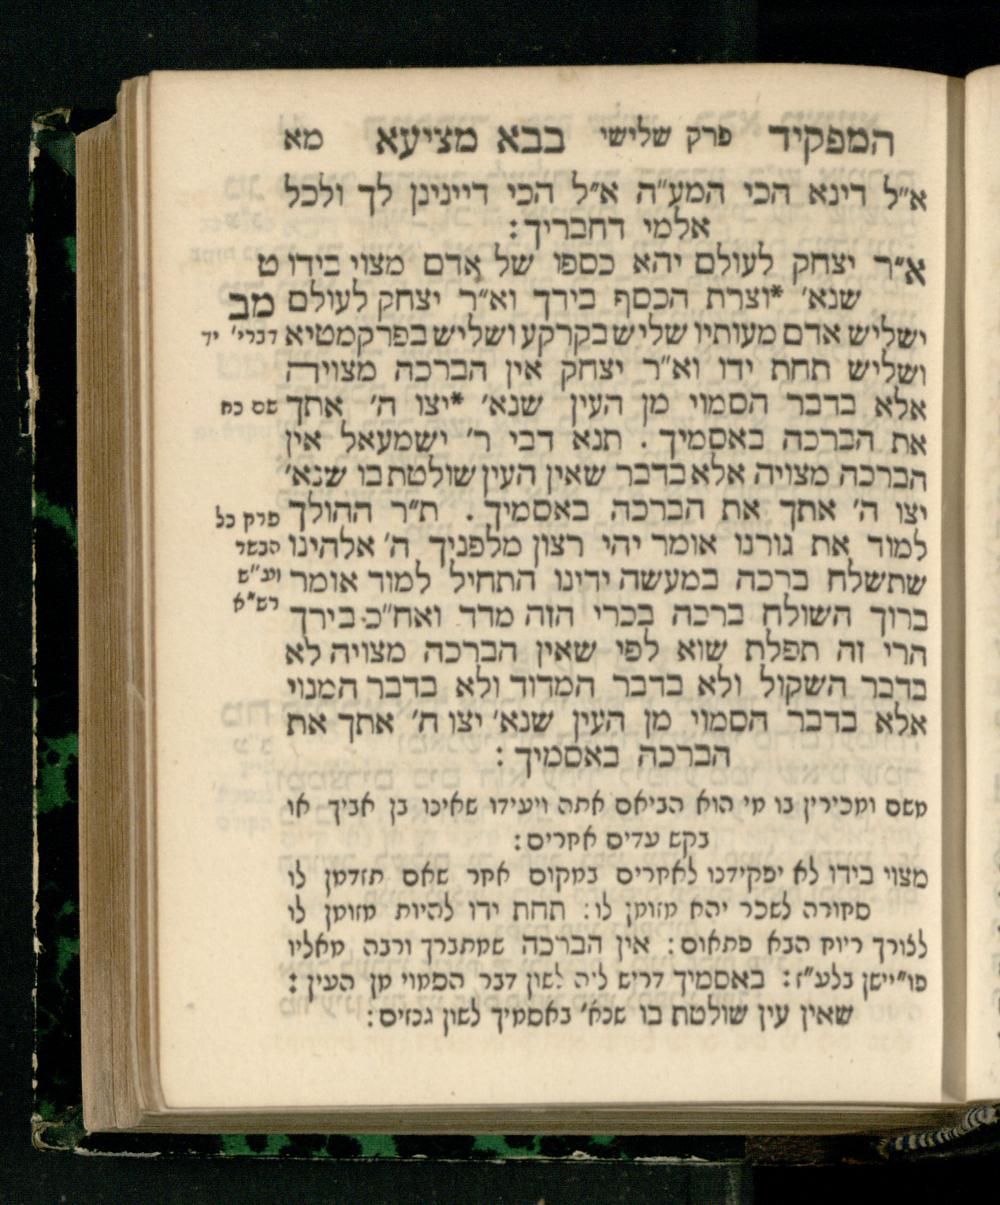 המפקיד פרק שלישי בבא מציעא מא
א״ל דינא הכי המע״ה א״ל הכי דיינינן לך ולכל
אלמי דחבריך :
א״ר יצחק לעולם יהא כספו של אדם מצוי בידו ט
שנא׳ *וצרת הכסף בירך וא״ר יצחק לעולם מב
ישליש אדם מעותיו שליש בקרקע ושליש בפרקמטיא דברי׳ יד
ושליש תחת ידו וא״ר יצחק אין הברכה מצויה
אלא בדבר הסמוי מן העין שנא׳ *יצו ה׳ אתך שם כח
את הברכה באסמיך . תנא דבי ר׳ ישמעאל אין
הברכה מצויה אלא בדבר שאין העין שולטת בו שנא׳
יצו ה׳ אתך את הברכה באסמיך . ת״ר ההולך פרק כל
למוד את גורנו אומר יהי רצון מלפניך ה׳ אלהינו הבשר
שתשלח ברכה במעשה ידינו התחיל למוד אומר ועב״ש
ברוך השולח ברכה בכרי הזה מדד ואח״כ בירך רש״א
הרי זה תפלת שוא לפי שאין הברכה מצויה לא
בדבר השקול ולא בדבר המדוד ולא בדבר המנוי
אלא בדבר הסמוי מן העין שנא׳ יצו ה׳ אתך את
הברכה באסמיך :
משם ומכירין בו מי הוא הביאם אתה ויעידו שאינו בן אביך או
בקש עדים אחרים :
מצוי בידו לא יפקידנו לאחרים במקום אחר שאם תזדמן לו
סחורה לשכר יהא מזומן לו : תחת ידו להיות מזומן לו
לצורך ריוח הבא פתאום : אין הברכה שמתברך ורבה מאליו
פו״יישן בלע״ז : באסמיך דריש ליה לשון דבר הסמוי מן העין :
שאין עין שולטת בו שנא׳ באסמיך לשון גנזים :